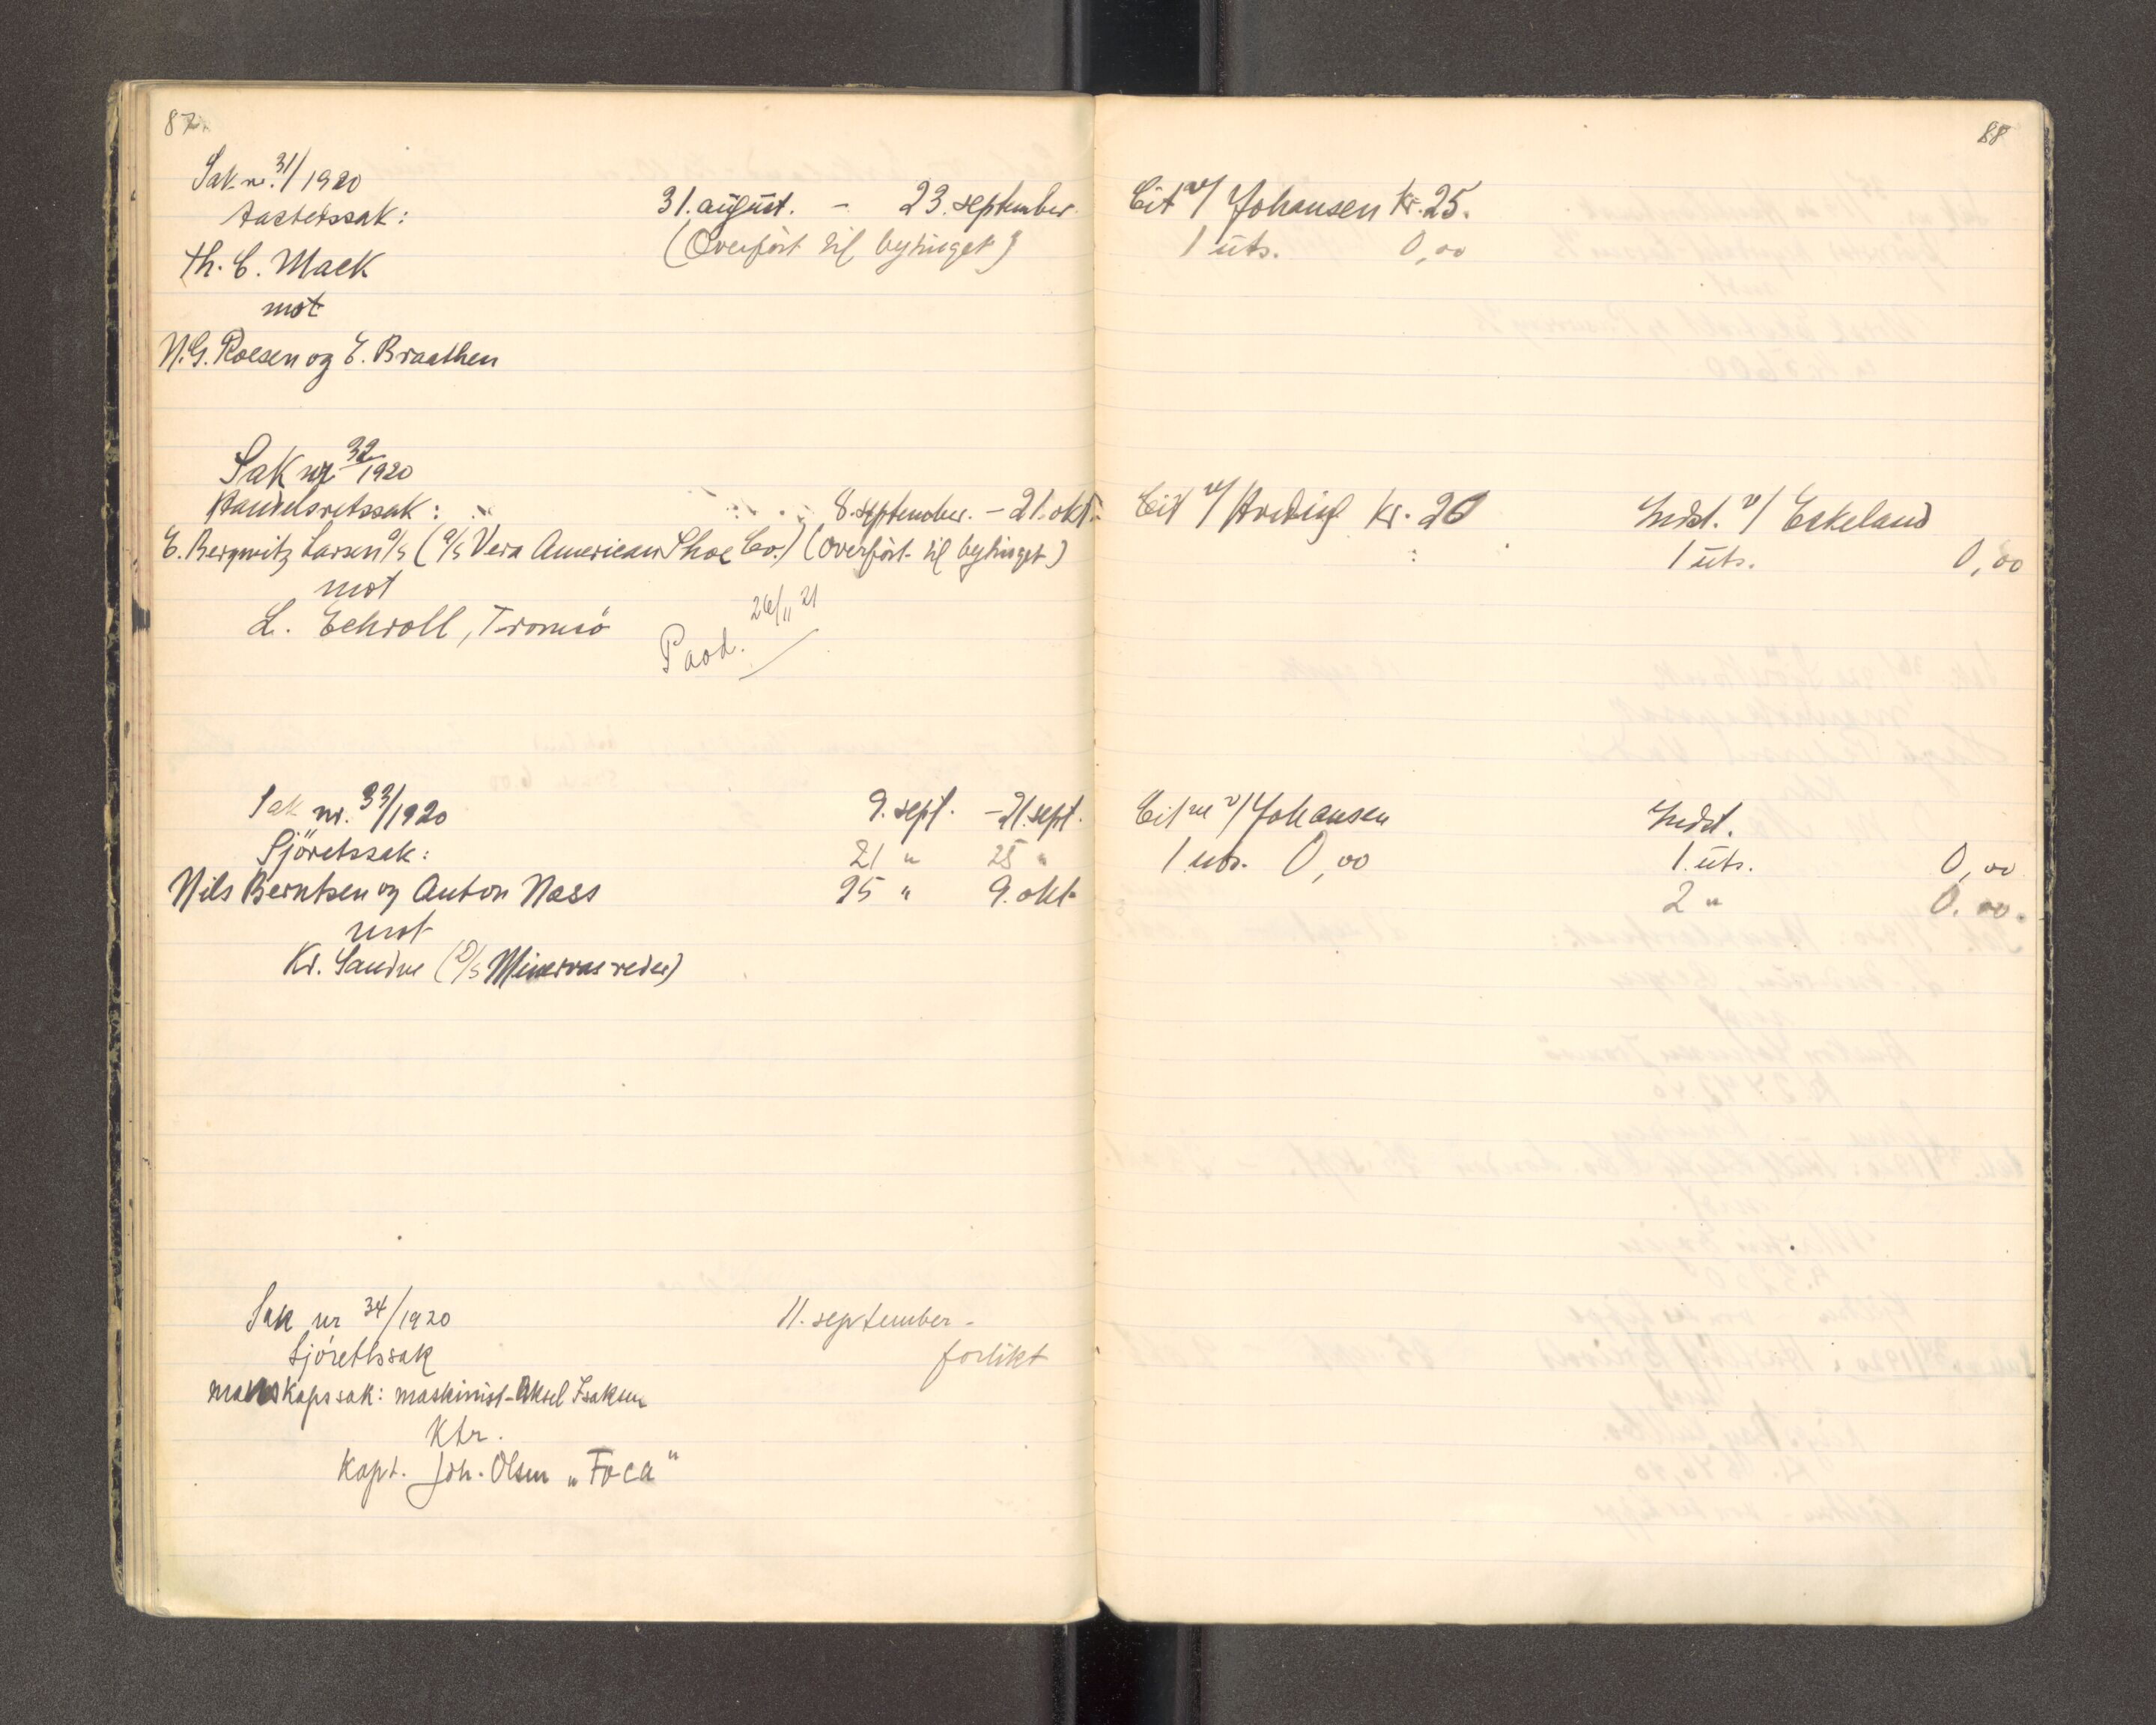 87.
Sak nr. 31/1920
Aastedssak:
Th. C. Mack
mot
N.G. Roesen og E. Braathen
31. august. - 23. september.
(Overfört til bytinget)
Sak nr 32/1920
Handelsretssak:
E. Bergwitz Larsen a/s (a/s Vera American Shoe Co.)
mot
L. Echroll, Tromsö
8. september. - 21. okt.
(Overfört til bytinget)
26/11 21
Sak nr. 33/1920
Sjöretssak:
Nils Berntsen og Anton Næss
mot
Kr. Sandve (D/S Minervas reder)
9. sept. - 21. sept.
21 " 25 "
25 " 9. okt.
Sak nr 34/1920
Sjörettssak
mannskapssak: maskinist Aksel Isaksen
Ktr.
Kapt. Joh. Olsen „Foca"
11. september -
forlikt
88
Cit v/ Johansen Kr. 25.
1 uts. 0,00
Cit v/ Kr. 20
Indst. v/ Eskeland
1 uts. 0,00
Citne v/ Johansen
1 uts. 0,00
Indst.
1 uts. 0,00
2 " 0.00.